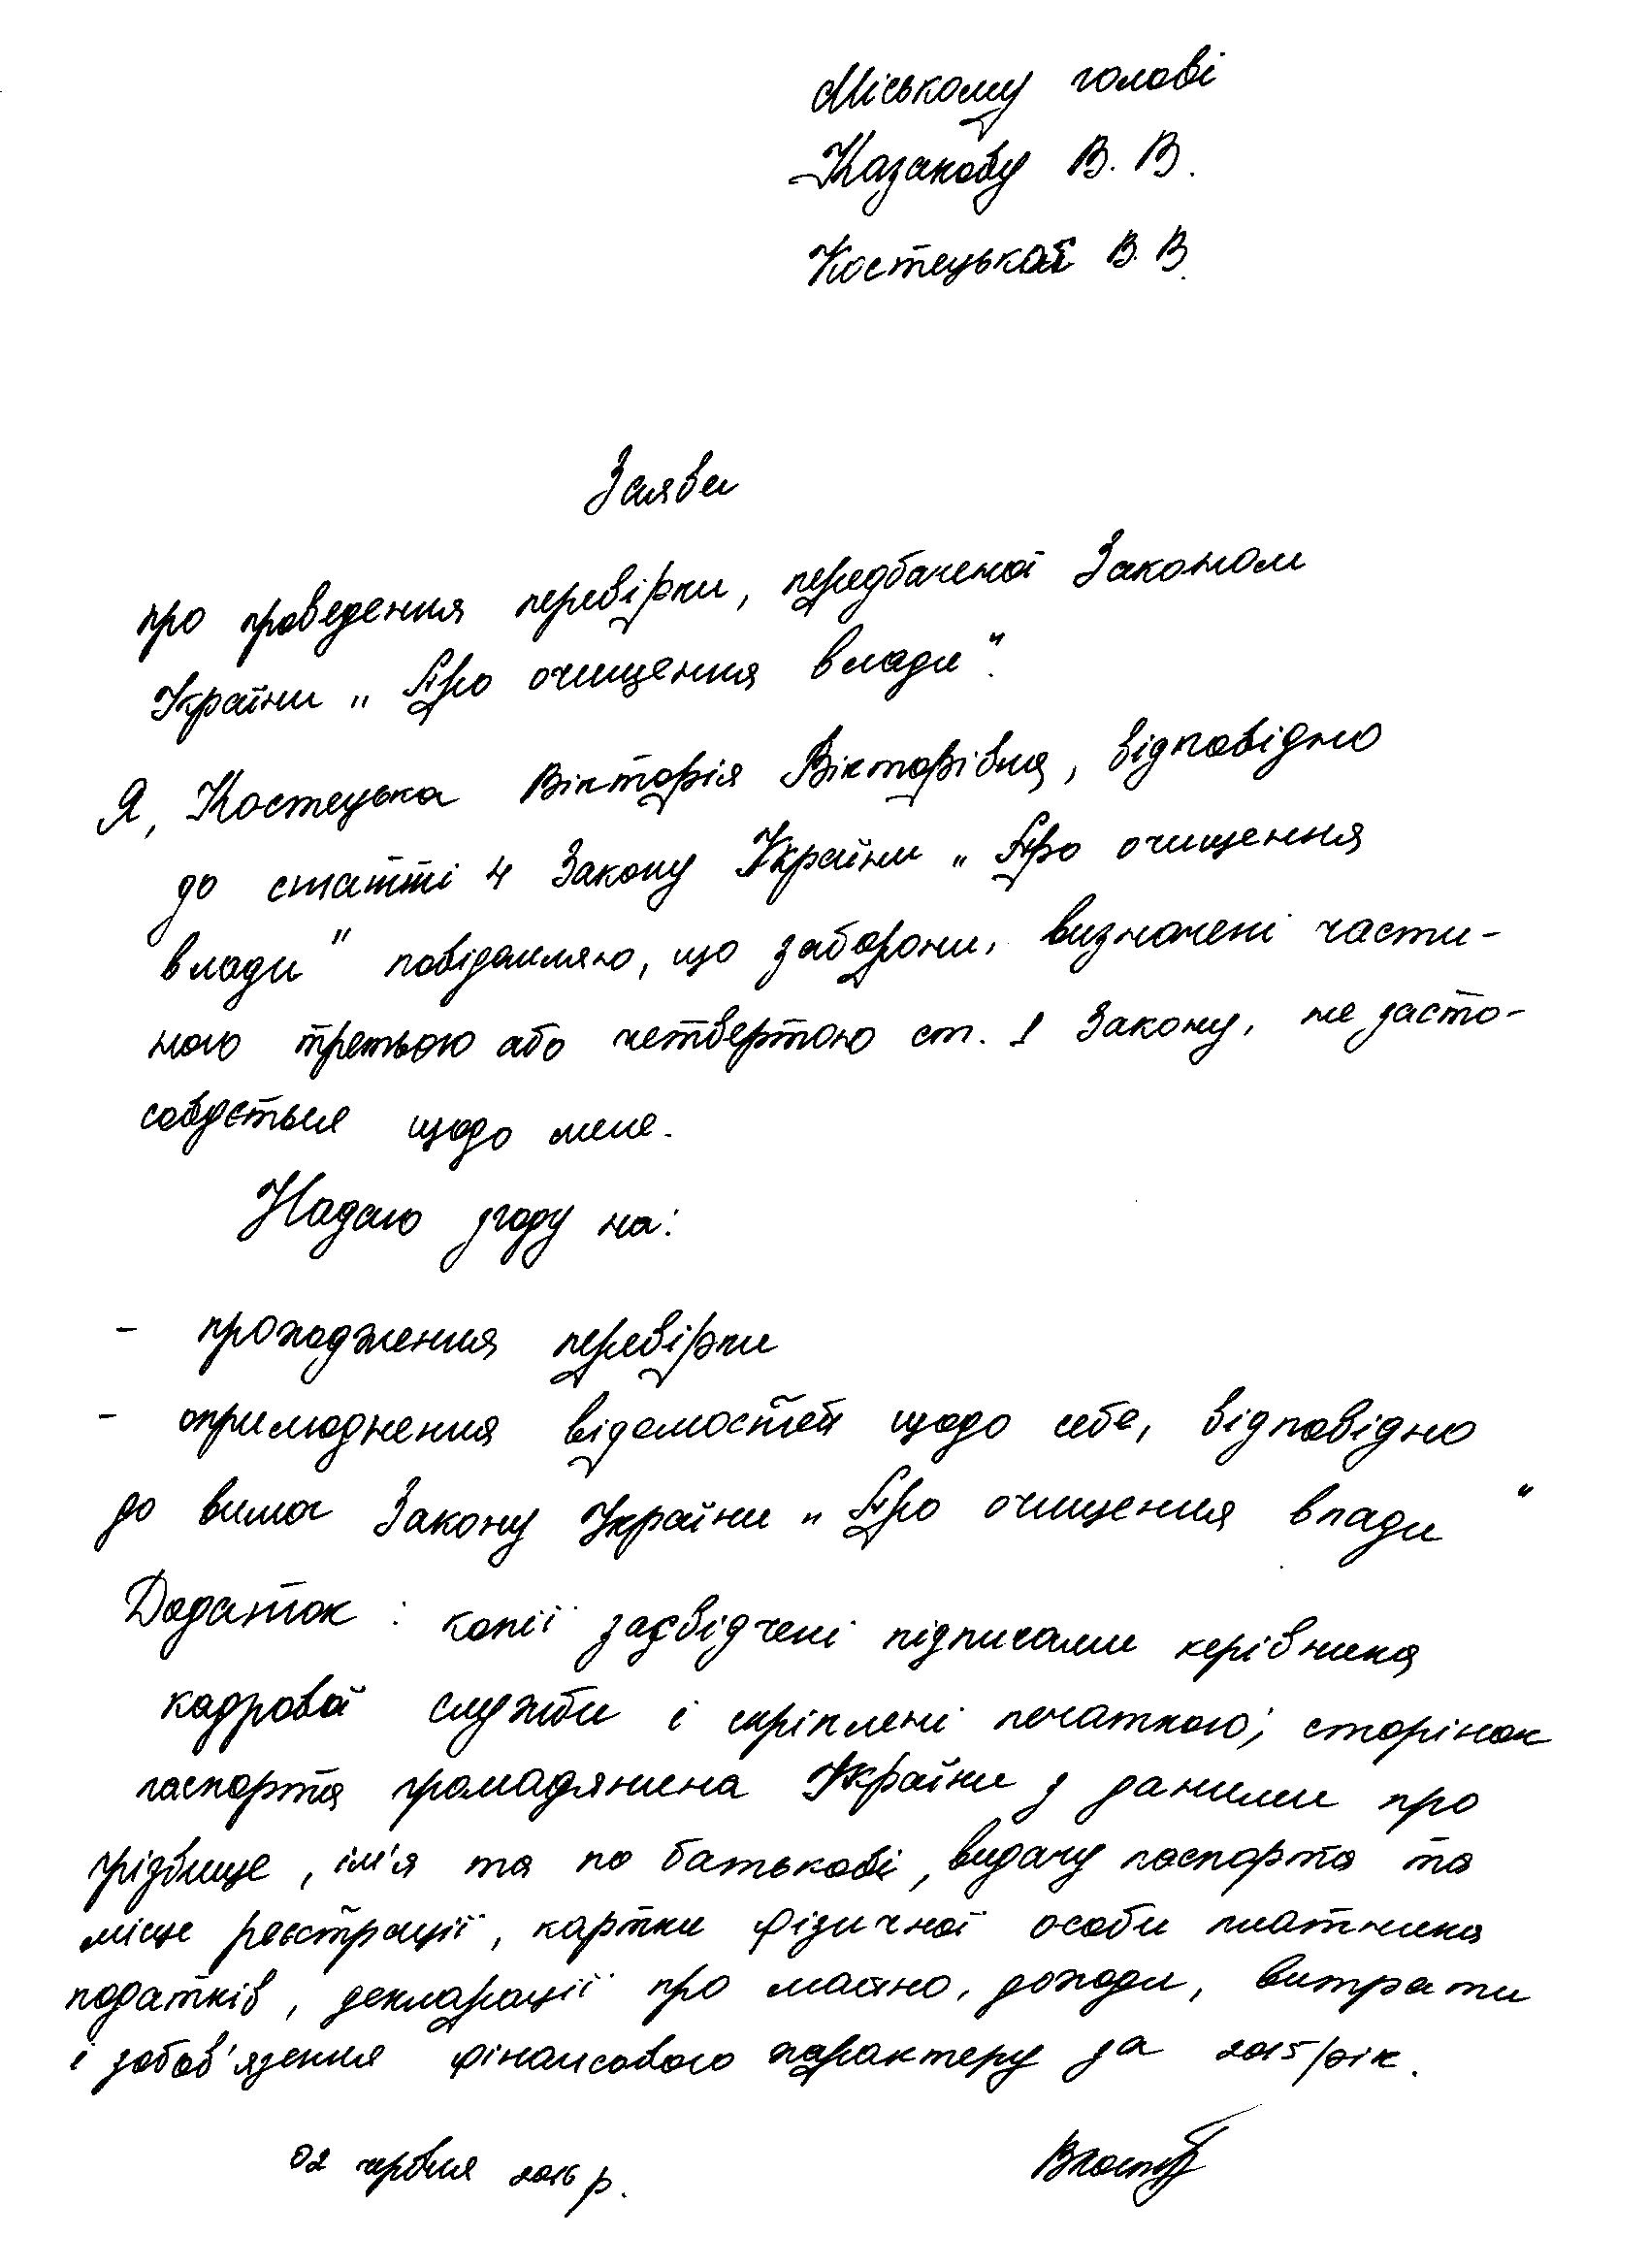 Міському голові
Казакову В. В.
Костецької В. В.
Заява
про проведення перевірки, передбаченої Законом
України „Про очищення влади".
Я, Костецька Вікторія Вікторівна, відповідно
до статті 4 Закону України „Про очищення
влади" повідомляю, що заборони, визначені части-
ною третьою або четвертою ст. 1 Закону, не засто-
совується щодо мене.
Надаю згоду на:
- проходження перевірки
- оприлюднення відомостей щодо себе, відповідно
до вимог Закону України „Про очищення влади"
Додаток: копії засвідчені підписами керівника
кадрової служби і скріплені печаткою; сторінок
паспорта громадянина України з даними про
прізвище, ім'я та по батькові, видачу паспорта та
місце реєстрації, картки фізичної особи платника
податків, декларації про майно, доходи, витрати
і зобов'язення фінансового характеру за 2015 рік.
02 червня 2016 р.